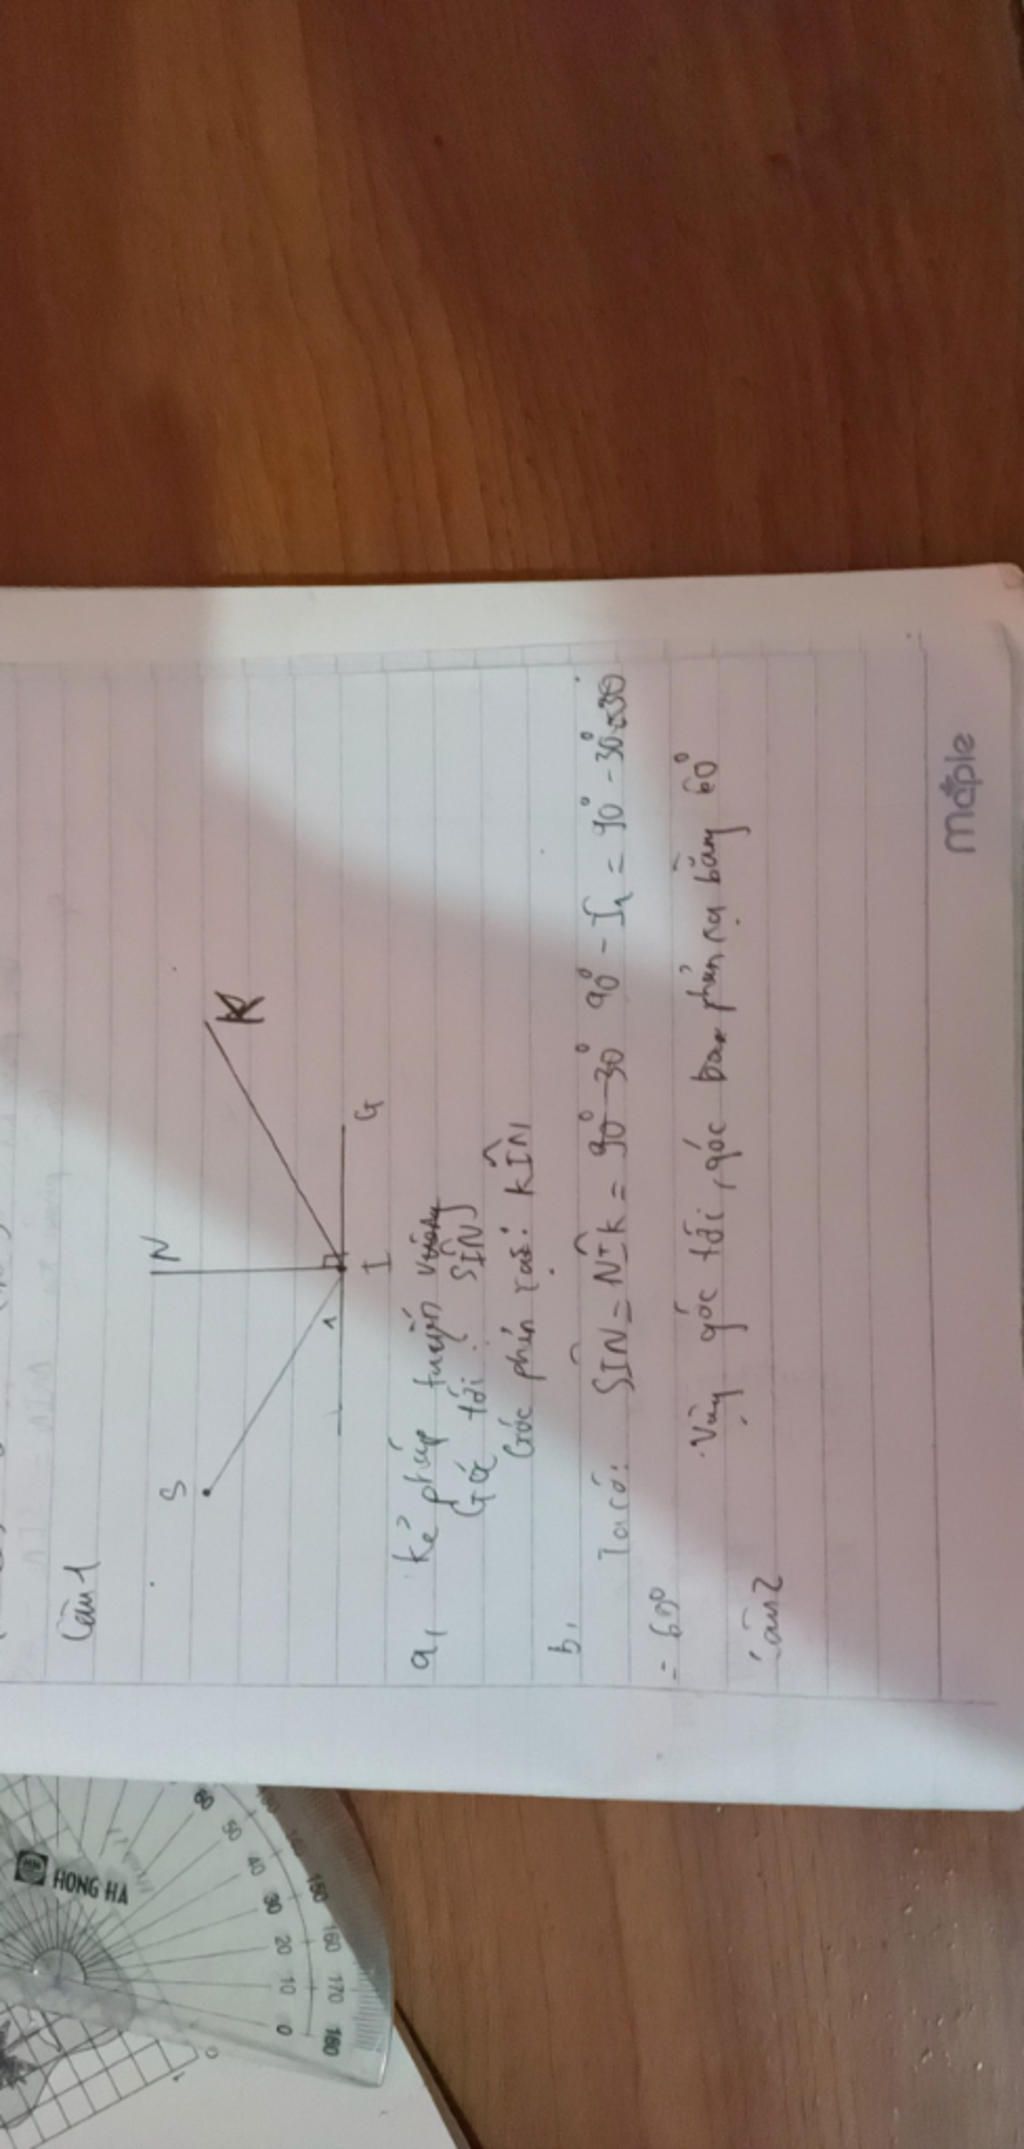 Câu 1
S
N
K
1
I
G
a, kẻ pháp tuyến
Góc tới: SIN
Góc phản xạ: KIN
b,
Ta có: SIN = NIK = 90° - 30° 90° - I₁ = 90° - 30°
= 60°
Vậy góc tới, góc phản xạ bằng 60°
Câu 2
maple
HONG HA
60
50
40
30
20
10
0
150
160
170
180